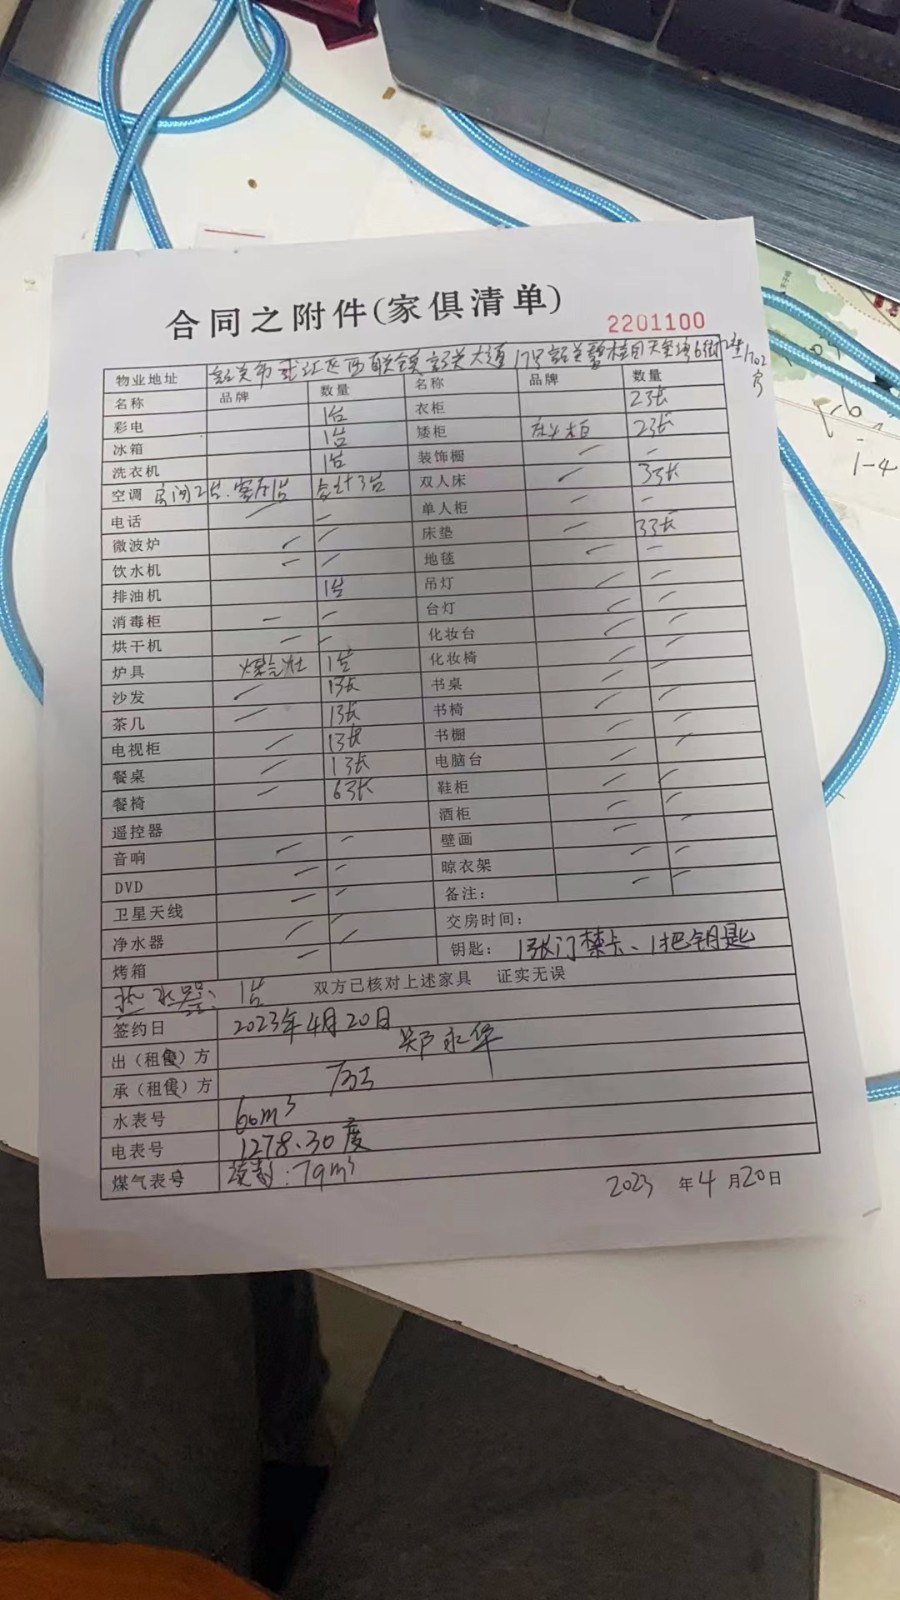 合同之附件(家俱清单)
2201100
物业地址 韶关市武江区西联镇韶关大道17号韶关碧桂园天玺湾6街2座1702房
名称 品牌 数量 名称 品牌 数量
彩电 1台 衣柜 2张
冰箱 1台 矮柜 床头柜 2张
洗衣机 1台 装饰橱 — —
空调 房间2台、客厅1台 合计3台 双人床 — 3张
电话 — — 单人柜 — —
微波炉 — — 床垫 — 3张
饮水机 — — 地毯 — —
排油机 1台 吊灯 — —
消毒柜 — — 台灯 — —
烘干机 — — 化妆台 — —
炉具 燃气灶 1台 化妆椅 — —
沙发 — 1张 书桌 — —
茶几 — 1张 书椅 — —
电视柜 — 1张 书橱 — —
餐桌 — 1张 电脑台 — —
餐椅 — 6张 鞋柜 — —
遥控器 酒柜 — —
音响 — — 壁画 — —
DVD — — 晾衣架 — —
卫星天线 — — 备注:
净水器 — — 交房时间:
烤箱 — 钥匙: 1张门禁卡、1把钥匙
热水器: 1台 双方已核对上述家具 证实无误
签约日 2023年4月20日
出(租售)方 郑永华
承(租售)方
水表号 60m³
电表号 1278.30度
煤气表号 读数:79m³
2023 年 4 月 20 日
6
1-4